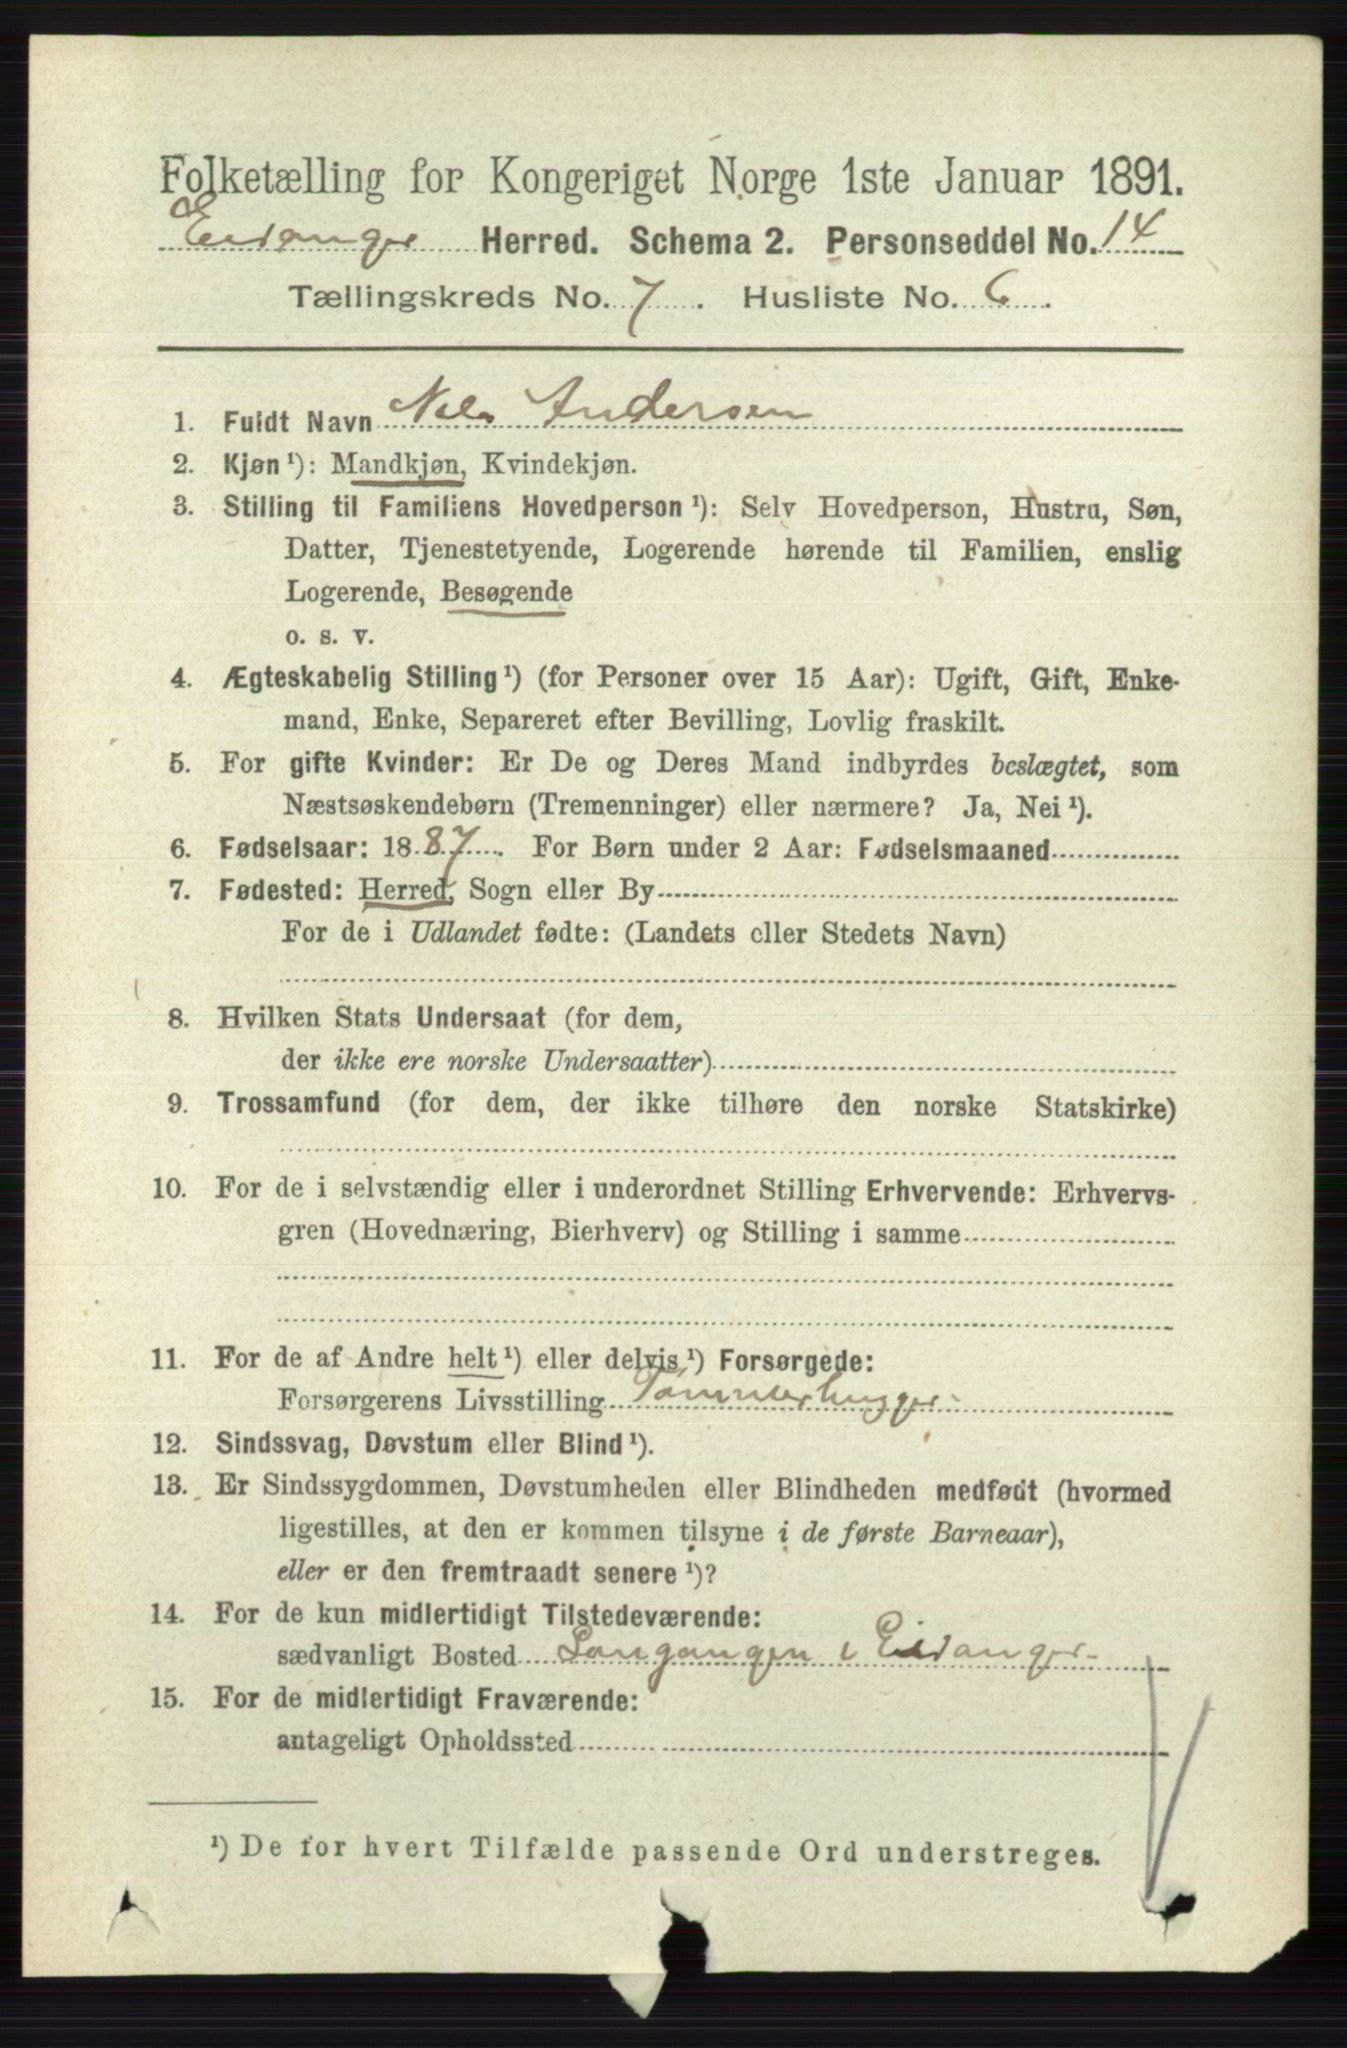 Folketælling for Kongeriget Norge 1ste Januar 1891.
Eidanger Herred. Schema 2. Personseddel No. 14
Tællingskreds No. 7. Husliste No. 6.
1. Fuldt Navn Nels Andersen
2. Kjøn ¹): Mandkjøn, Kvindekjøn.
3. Stilling til Familiens Hovedperson ¹): Selv Hovedperson, Hustru, Søn,
Datter, Tjenestetyende, Logerende hørende til Familien, enslig
Logerende, Besøgende
o. s. v.
4. Ægteskabelig Stilling ¹) (for Personer over 15 Aar): Ugift, Gift, Enke-
mand, Enke, Separeret efter Bevilling, Lovlig fraskilt.
5. For gifte Kvinder: Er De og Deres Mand indbyrdes beslægtet, som
Næstsøskendebørn (Tremenninger) eller nærmere? Ja, Nei ¹).
6. Fødselsaar: 1887. For Børn under 2 Aar: Fødselsmaaned
7. Fødested: Herred, Sogn eller By
For de i Udlandet fødte: (Landets eller Stedets Navn)
8. Hvilken Stats Undersaat (for dem,
der ikke ere norske Undersaatter)
9. Trossamfund (for dem, der ikke tilhøre den norske Statskirke)
10. For de i selvstændig eller i underordnet Stilling Erhvervende: Erhvervs-
gren (Hovednæring, Bierhverv) og Stilling i samme
11. For de af Andre helt ¹) eller delvis ¹) Forsørgede:
Forsørgerens Livsstilling Tømmerhugger
12. Sindssvag, Døvstum eller Blind ¹).
13. Er Sindssygdommen, Døvstumheden eller Blindheden medfødt (hvormed
ligestilles, at den er kommen tilsyne i de første Barneaar),
eller er den fremtraadt senere ¹)?
14. For de kun midlertidigt Tilstedeværende:
sædvanligt Bosted Langangen i Eidanger
15. For de midlertidigt Fraværende:
antageligt Opholdssted
¹) De for hvert Tilfælde passende Ord understreges.